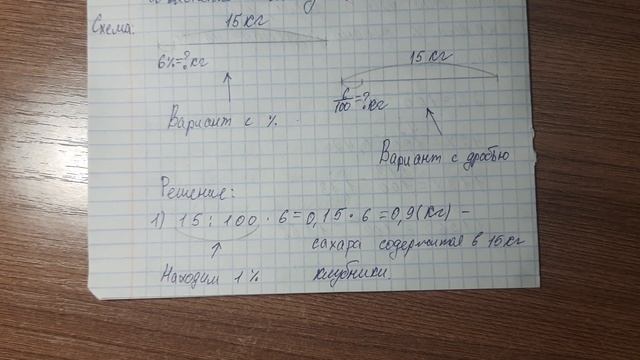 Схема:
15кг
6%=?кг
Вариант с %.
15кг
6/100=?кг
Вариант с дробью
Решение:
1) 15:100·6=0,15·6=0,9(кг) –
сахара содержится в 15кг
клубники.
Находим 1%